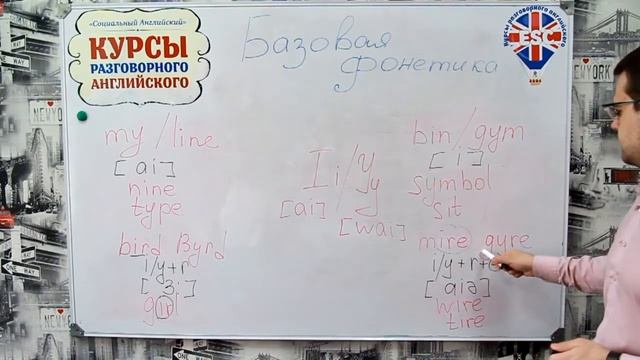 «Социальный Английский»
КУРСЫ
РАЗГОВОРНОГО
АНГЛИЙСКОГО
Базовая
фонетика
Курсы разговорного английского
ESC
my/line
[ai]
nine
type
bird Byrd
i/y+r
[ɜ:]
girl
Ii/Yy
[ai]
[wai]
bin/gym
[i]
symbol
sit
mire gyre
i/y+r+e
[aiə]
wire
tire
NEW YORK
NEW YORK